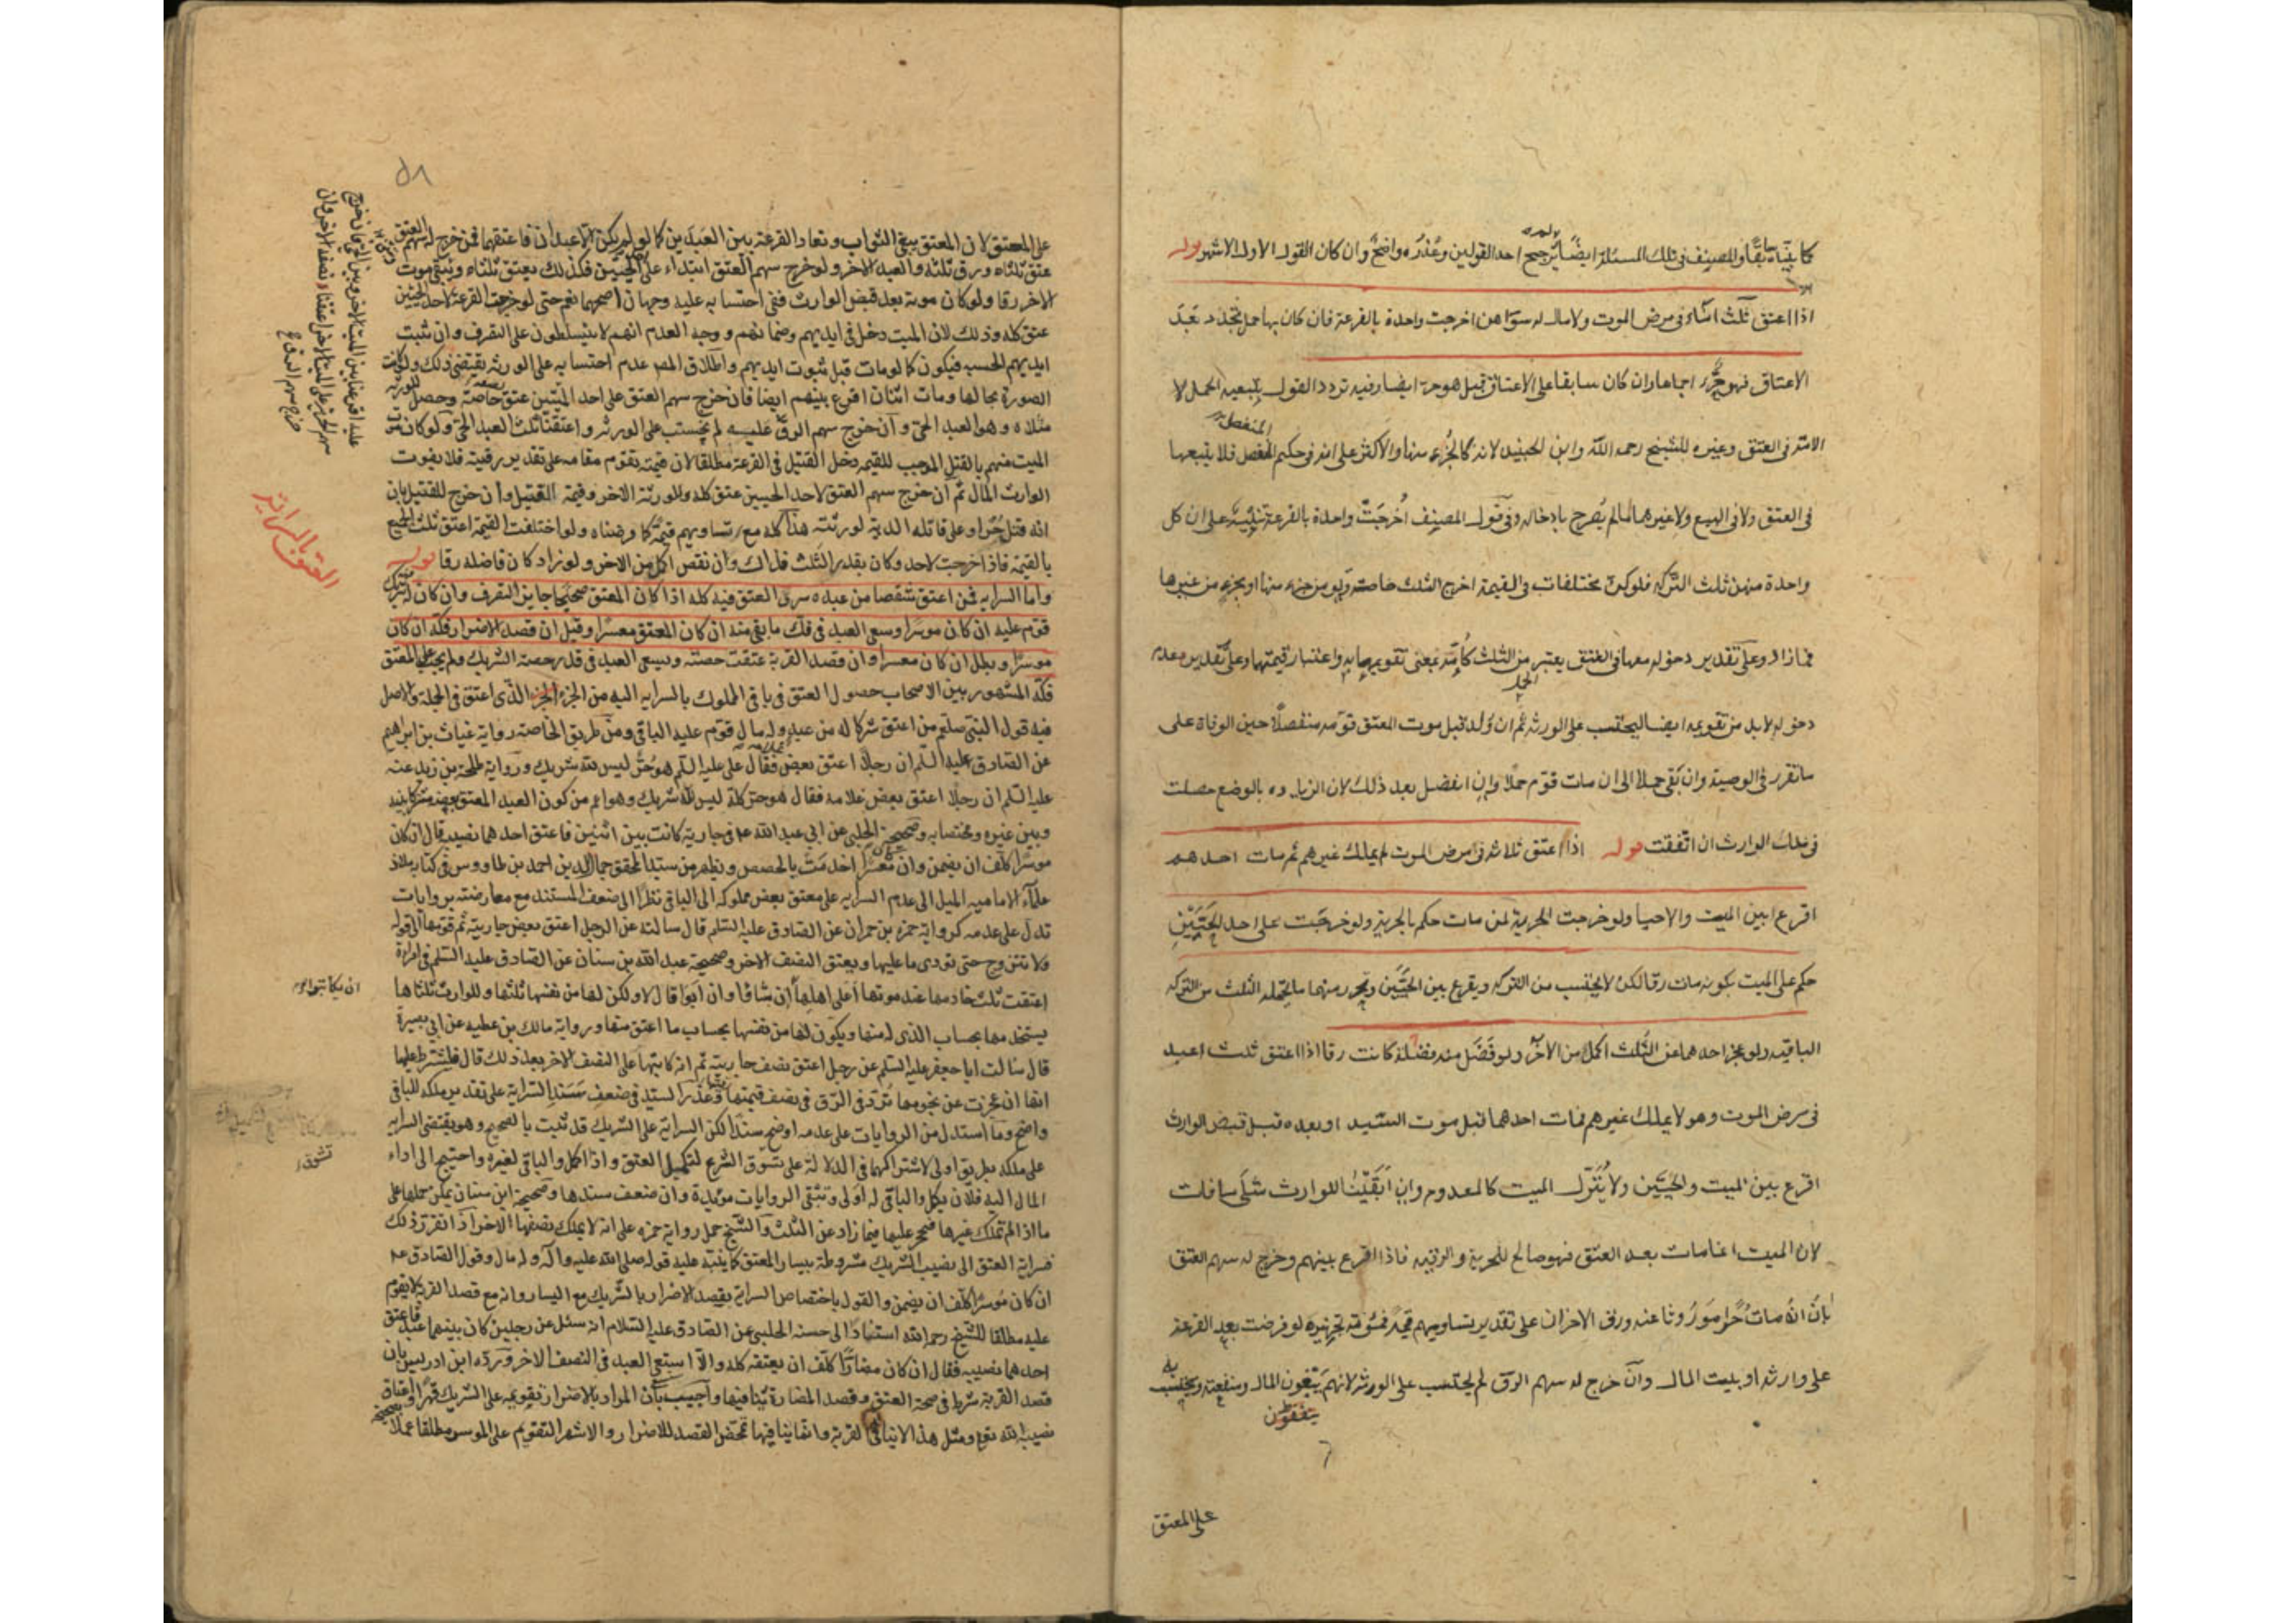 كما بيناه سابقا وللمصنف في تلك المسئلة ايضا ترجيح احد القولين وعذره واضح وان كان القول الاول الاشهر قوله
اذا اعتق ثلث اماء في مرض الموت ولا مال له سواهن اخرجت واحدة بالقرعة فان كان بها حمل تجدد بعد
الاعتاق فهو حر اجماعا وان كان سابقا على الاعتاق قيل هو حر ايضا وفيه تردد القول بتبعيه الحمل لا
الامه في العتق وغيره للشيخ رحمه الله وابن الجنيد لانه كالجزء منها والاكثر على انه في حكم المنفصل فلا يتبعها
في العتق ولا في البيع ولا غيرهما مالم يصرح بادخاله وفي قول المصنف اخرجت واحدة بالقرعة تنبيه على ان كل
واحدة منهن ثلث التركه فلو كن مختلفات في القيمة اخرج الثلث خاصة ولو من جزء منها او بجزء من غيرها
فما زاد وعلى تقدير دخوله معها في العتق يعتبر من الثلث كامه بمعنى تقويمها به واعتبار قيمتها وعلى تقدير عدم
دخوله لابد من تقويمه ايضا ليحتسب على الورثه ثم ان ولد قبل موت المعتق قومه منفصلا حين الوفاة على
ما تقرر في الوصية وان بقى حملا الى ان مات قوم حملا وان انفصل بعد ذلك لان الزياده بالوضع حصلت
في ملك الوارث ان اتفقت قوله اذا اعتق ثلاثة في مرض الموت لم يملك غيرهم ثم مات احدهم
اقرع بين الميت والاحيا ولو خرجت الحرية لمن مات حكم بالحرية ولو خرجت على احد الحيين
حكم على الميت بكونه مات رقا لكن لا يحتسب من التركه ويقرع بين الحيين وتحرر منهما ما يحتمله الثلث من التركه
الباقيه ولو عجز احدهما عن الثلث اكمل من الاخر ولو فضل منه فضلة كانت رقا اذا اعتق ثلث اعبد
في مرض الموت وهو لا يملك غيرهم فمات احدهما قبل موت السيد او بعده قبل قبض الوارث
اقرع بين الميت والحيين ولا يتنزل الميت كالمعدوم وان ابقيت للوارث مثلى ما فات
لان الميت انما مات بعد العتق فهو صالح للحرية والرقيه فاذا اقرع بينهم وخرج له سهم العتق
بان انه مات حرا موروثا عنه ورق الاخران على تقدير تساويهم قيمة فمئونة تجهيزه لو فرضت بعد القرعة
على وارثه او بيت المال وان خرج له سهم الرق لم يحتسب على الورثه لانهم يبتغون المال ومنفعته ويحتسب به
على المعتق
٥٨
على المعتق لان المعتق يبتغي الثواب وتعاد القرعة بين العبدين كما لو لم يكن الا عبدان فاعتقهما فمن خرج له سهم العتق
عتق ثلثاه ورق ثلثه والعبد الاخر ولو خرج سهم العتق ابتداء على احد الحيين فكذلك يعتق ثلثاه ويبقى موت
الاخر رقا ولو كان موته بعد قبض الوارث ففي احتسابه عليه وجهان اصحهما نعم حتى لو خرجت القرعة لاحد الحيين
عتق كله وذلك لان الميت دخل في ايديهم وضمانهم ووجه العدم انهم لا يتسلطون على التصرف وان ثبت
ايديهم الحسيه فيكون كما لو مات قبل ثبوت ايديهم واطلاق المص عدم احتسابه على الورثه يقتضي ذلك ولو كانت
الصورة بحالها ومات اثنان اقرع بينهم ايضا فان خرج سهم العتق على احد الميتين عتق نصفه خاصة وحصل للورثه
مثلاه وهو العبد الحي وان خرج سهم الرق عليه لم يحتسب على الورثه واعتقنا ثلث العبد الحي ولو كان موت
الميت منهم بالقتل الموجب للقيمه دخل القتيل في القرعة مطلقا لان قيمته تقوم مقامه على تقدير رقيته فلا يفوت
الوارث المال ثم ان خرج سهم العتق لاحد الحيين عتق كله وللورثة الاخر وقيمة القتيل وان خرج للقتيل بان
انه قتل حرا وعلى قاتله الدية لورثته هذا كله مع تساويهم قيمة كما فرضناه ولو اختلفت القيمة اعتق ثلث الجميع
بالقيمة فاذا خرجت لاحد وكان بقدر الثلث فذاك وان نقص اكمل من الاخر ولو زاد كان فاضله رقا قوله
واما السرايه فمن اعتق شقصا من عبده سرى العتق فيه كله اذا كان المعتق صحيحا جايز التصرف وان كان له شريك
قوم عليه ان كان موسرا وسعى العبد في فك ما بقى منه ان كان المعتق معسرا وقيل ان قصد الاضرار فكه ان كان
موسرا وبطل ان كان معسرا وان قصد القربة عتقت حصته وسعى العبد في قدر حصة الشريك ولم يجب على المعتق
فكه المشهور بين الاصحاب حصول العتق في باقي المملوك بالسرايه اليه من الجزء الذي اعتق في الجملة والاصل
فيه قول النبي صلعم من اعتق شركا له من عبد وله مال قوم عليه الباقي ومن طريق الخاصة رواية غياث بن ابراهيم
عن الصادق عليه السلم ان رجلا اعتق بعض غلامه فقال علي عليه السلم هو حر ليس لله شريك ورواية طلحة بن زيد عنه
عليه السلم ان رجلا اعتق بعض غلامه فقال هو حر كله ليس لله شريك وهو اعم من كون العبد المعتق بعضه مشتركا بينه
وبين غيره ومختصا به وصحيحة الحلبي عن ابي عبد الله عه في جارية كانت بين اثنين فاعتق احدهما نصيبه قال ان كان
موسرا كلف ان يضمن وان كان معسرا اخدمت بالحصص ويظهر من سيد المحقق جمال الدين احمد بن طاووس في كتابه ملاذ
علماء الاماميه الميل الى عدم السرايه على معتق بعض مملوكه الى الباقي نظرا الى ضعف المستند مع معارضته بروايات
تدل على عدمه كرواية حمزه بن حمران عن الصادق عليه السلم قال سالته عن الرجل اعتق بعض جاريته ثم قوفها الى قوله
ولا تتزوج حتى تودى ما عليها ويعتق النصف الاخر وصحيحة عبد الله بن سنان عن الصادق عليه السلم في امراة
اعتقت ثلث خادمها عند موتها اعلى اهلها ان يكاتبوها ان شاؤا وان ابوا قال لا ولكن لها من نفسها ثلثها وللوارث ثلثاها
يستخدمها بحساب الذي له منها ويكون لها من نفسها بحساب ما اعتق منها ورواية مالك بن عطيه عن ابي بصيرة
قال سالت ابا جعفر عليه السلم عن رجل اعتق نصف جاريته ثم انه كاتبها على النصف الاخر بعد ذلك قال فليشترط عليها
انها ان عجزت عن نجومها ترد في الرق في نصف قيمتها وعذر السيد في ضعف سند السراية على تقدير ملكه للباقي
واضح وما استدل من الروايات على عدمه اوضح سندا لكن السراية على الشريك قد ثبت بالصحيح وهو يقتضي السرايه
على ملكه بطريق اولى لاشتراكهما في الدلالة على تشوق الشرع لتكميل العتق واذا اكمل والباقي لغيره واحتيج الى اداء
المال اليه فلان يكمل والباقي له اولى وتبقى الروايات مؤيدة وان ضعف سندها وصحيحة ابن سنان يمكن حملها على
ما اذا لم تملك غيرها فحجر عليها فيما زاد عن الثلث والشيخ حمل رواية حمزه على انه لا يملك نصفها الاخر اذا تقرر ذلك
فسراية العتق الى نصيب الشريك مشروطة بيسار المعتق كما ينبه عليه قوله صلى الله عليه واله وله مال وقول الصادق عه
ان كان موسرا كلف ان يضمن والقول باختصاص السراية بقصد الاضرار بالشريك مع اليسار وانه مع قصد القربة لا يقوم
عليه مطلقا للشيخ رحمه الله استنادا الى حسنه الحلبي عن الصادق عليه السلام انه سئل عن رجلين كان بينهما عبد فاعتق
احدهما نصيبه فقال ان كان مضارا كلف ان يعتقه كله والا استسعى العبد في النصف الاخر ورده ابن ادريس بان
قصد القربة شرط في صحة العتق وقصد المضارة ينافيها واجيب بان المراد بالاضرار تقويمه على الشريك قهرا واعتاق
نصيبه لله تعالى ومثل هذا لا ينافي القربة وانما ينافيها تمحض القصد للاضرار والاشهر التقويم على الموسر مطلقا عملا بصحيحة
العتق بالسراية
ان يكاتبوها
تشوق